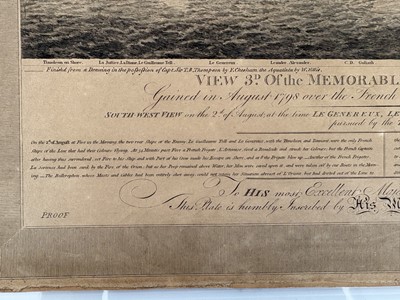 Timoleon on Shore. La Justice. La Diane. Le Guillaume Tell. Le Genereux Leander. Alexander. C. D. Goliath
Finish'd from a Drawing in the possession of Capt. Sir T. B. Thompson by F. Chesham the Aquatinta by W. Ellis.
VIEW 3D. Of the MEMORABL
Gained in August 1798 over the French
SOUTH WEST VIEW on the 2d. of August, at the time LE GENEREUX, LE
pursued by the
On the 2d. of August at Five in the Morning the two rear Ships of the Enemy Le Guillaume Tell and Le Genereux, with the Timoleon and Tonnant were the only French
Ships of the Line that had their Colours flying. At 54 Minutes past Five a French Frigate L'Artemise, fired a Broadside and struck her Colours: but the French Captain
after having thus surrendered, set Fire to his Ship and with Part of his Crew made his Escape on Shore, and as the Frigate blew up
La Serieuse had been sunk by the Fire of the Orion, but as her Poop remained above Water, her Men were saved upon it, and were taken off by our Boats in the Morn-
-ing. The Bellerophon whose Masts and Cables had been entirely shot away could not retain her Situation abreast of L'Orient but had drifted out of the Line to
To HIS most Excellent Maj
This Plate is humbly Inscribed by His M
PROOF